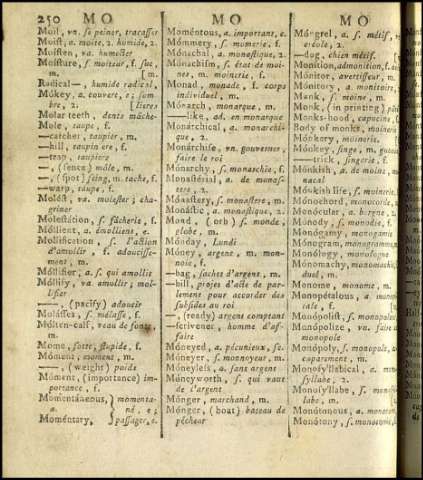 250 MO MO MO
Moil, va. se peiner, tracasser
Moist, a. moite, 2. humide, 2.
Moisten, va. humecter
Moisture, s. moiteur, f. suc,
m. [m.
Radical—, humide radical,
Mókey, a. couvert, e; som
bre, 2. [lieres
Molar teeth, dents mâche-
Mole, taupe, f.
—catcher, taupier, m.
—hill, taupin ere, f.
—trap, taupiere
—, (fence) môle, m.
—, (spot) seing, m. tache, f.
—warp, taupe, f.
Molést, va. molester; cha-
griner
Molestátion, s. fâcherie, f.
Móllient, a. émollient, e.
Mollification, s. l'action
d'amollir, f. adoucisse-
ment, m.
Móllifier, a. s. qui amollit
Móllify, va. amollir; mol-
lifier
—, (pacify) adoucir
Molásses, s. mélasse, f.
Mólten-calf, veau de fonte,
m.
Mome, sotte, stupide, f.
Móment, moment, m.
—, (weight) poids
Móment, (importance) im-
portance, f.
Momentáneous, } momenta-
né, e;
Moméntary, } passager, e.
Moméntous, a. important, e.
Mómmery, s. momerie, f.
Mónachal, a. monastique, 2.
Mónachism, s. état de moi-
nes, m. moinerie, f.
Monad, monade, f. corps
individuel, m.
Mónarch, monarque, m.
—like, ad. en monarque
Monárchical, a. monarchi-
que, 2.
Monárchise, vn. gouverner,
faire le roi
Mónarchy, s. monarchie, f.
Monastérial, a. de monas-
tere, 2.
Mónastery, s. monastere, m.
Monástic, a. monastique, 2.
Mond, (orb) s. monde;
globe, m.
Mónday, Lundi
Móney, argent, m. mon-
noie, f.
—bag, sachet d'argent, m.
—bill, projet d'acte de par-
lement pour accorder des
subsides au roi
—, (ready) argent comptant
—scrivener, homme d'af-
faire
Móneyed, a. pécunieux, se.
Móneyer, s. monnoyeur, m.
Móneyless, a. sans argent
Móneyworth, s. qui vaut
de l'argent
Mónger, marchand, m.
Mónger, (boat) bateau de
pêcheur
Móngrel, a. s. métif,
—dog, chien métif.
Monítion, admonition, f.
Mónitor, avertisseur, m.
Mónitory, a. monitoire,
Monk, s. moine, m.
Monk, (in printing)
Monks-hood, capucine,
Body of monks, moinerie
Mónkery, moinerie,
Mónkey, singe, m.
—trick, singerie, f.
Mónkish, a. de moine,
nacal
Mónkish life, s. moinerie,
Mónochord, monocorde,
Monócular, a. borgne, 2.
Mónody, s. monodie, f.
Monógamy, monogamie
Mónogram, monogramme,
Monólogy, monologue
Monomachy, monomachie,
duel, m.
Monome, monome, m.
Monopétalous, a.
Monópolist, s.
Monópolize, va. faire
monopole
Monópoly, s. monopole,
m.
Monosyllabical, a.
syllabe, 2.
Monosyllable, s.
labe, m.
Monótonous, a.
Monótony, s. monotonie,